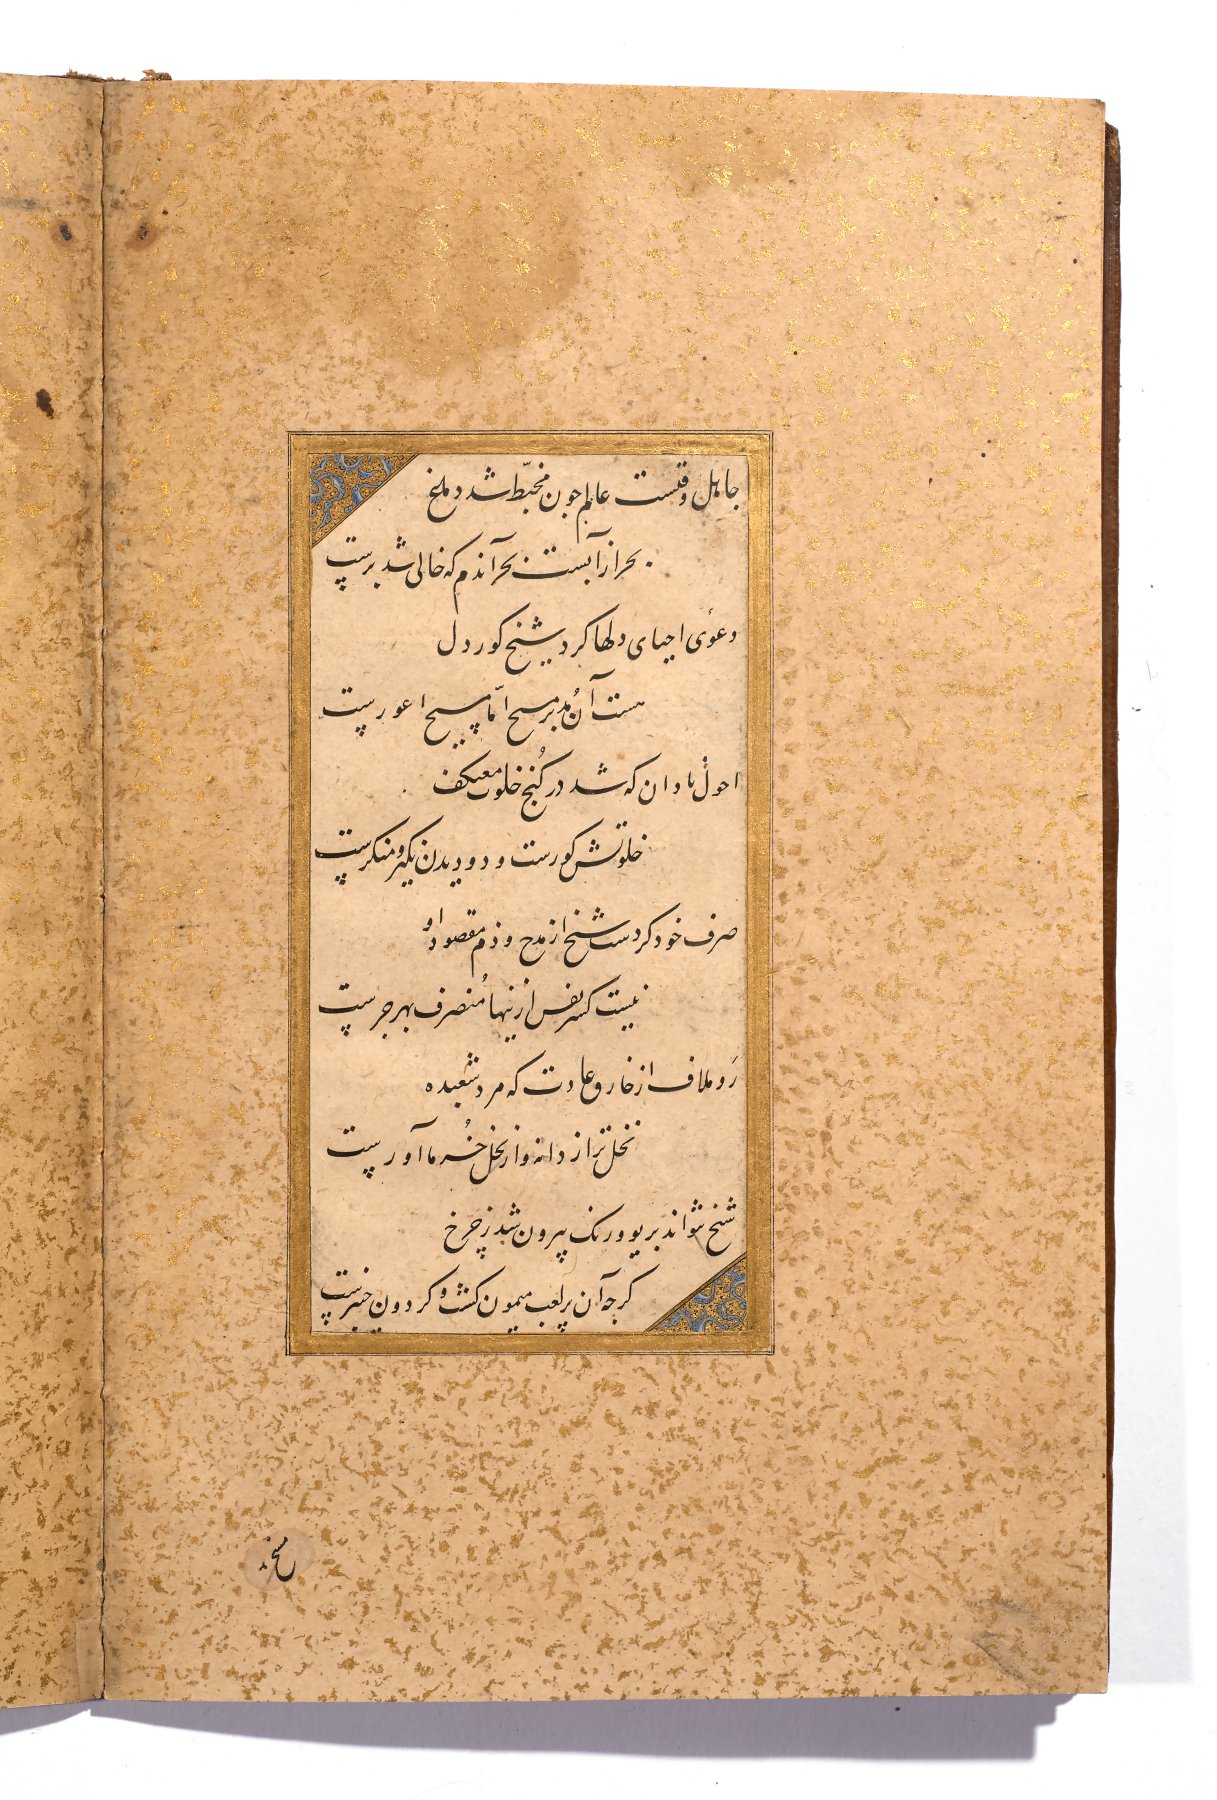 جاهل وقتست عالم چون مخبط شد دماغ
بحر از آبست بحر آندم که خالی شد برست
دعوئ احیای دلها کرد شیخ کوردل
هست آن مُدبر مسیح امّا مسیح اعورست
احول نادان که شد در کُنج خلوت معتکف
خلوتش کورست و دو دیدن نکیر و منکرست
صرف خود کردست شیخ از مدح و ذم مقصود او
نیست کسر نفس ازینها مُنصرف بهر جرست
رَو ملاف از خارق عادت که مرد شعبده
نخل تر از دانه و از نخل خُرما آورست
شیخ نتواند بریو و رنک بیرون شد ز چرخ
کرجه آن پر لعب میمون کشت و کردون چنبرست